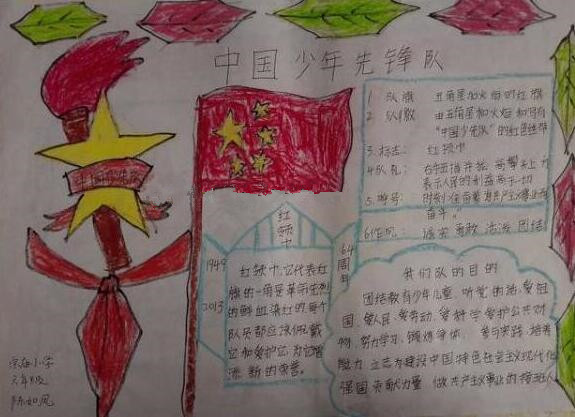 中国少年先锋队
1 队旗 五角星加火炬的红旗
2 队徽 由五角星和火炬和写有
"中国少先队"的红色绶带
3.标志: 红领巾
4队礼: 右手五指并拢 高举头上 
表示人民的利益高于一切
5.呼号: 时刻准备着
奋斗。
6作风: 诚实 勇敢 活泼 团结
红领巾
1949
2013
64周年
红领巾,它代表红
旗的一角是革命先烈
的鲜血染红的,每个
队员都应该佩戴
它和爱护它,为它增
添新的荣誉。
我们队的目的
团结教育少年儿童,听党的话,爱祖
国、爱人民、爱劳动、爱科学、爱护公共财
物,努力学习,锻炼身体, 参与实践,培养
能力 立志为建设中国特色社会主义现代化
强国贡献力量 做共产主义事业的接班人
小学
六年级